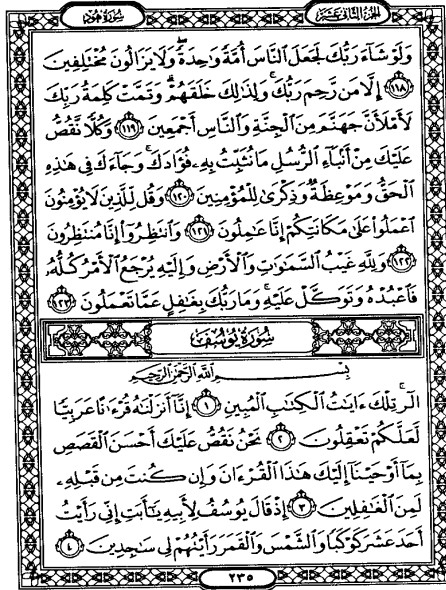 الجزء الثاني عشر
سورة هود
وَلَوْ شَآءَ رَبُّكَ لَجَعَلَ ٱلنَّاسَ أُمَّةً وَٰحِدَةً ۖ وَلَا يَزَالُونَ مُخْتَلِفِينَ
١١٨ إِلَّا مَن رَّحِمَ رَبُّكَ ۚ وَلِذَٰلِكَ خَلَقَهُمْ ۗ وَتَمَّتْ كَلِمَةُ رَبِّكَ
لَأَمْلَأَنَّ جَهَنَّمَ مِنَ ٱلْجِنَّةِ وَٱلنَّاسِ أَجْمَعِينَ ١١٩ وَكُلًّا نَّقُصُّ
عَلَيْكَ مِنْ أَنۢبَآءِ ٱلرُّسُلِ مَا نُثَبِّتُ بِهِۦ فُؤَادَكَ ۚ وَجَآءَكَ فِى هَٰذِهِ
ٱلْحَقُّ وَمَوْعِظَةٌ وَذِكْرَىٰ لِلْمُؤْمِنِينَ ١٢٠ وَقُل لِّلَّذِينَ لَا يُؤْمِنُونَ
ٱعْمَلُوا۟ عَلَىٰ مَكَانَتِكُمْ إِنَّا عَٰمِلُونَ ١٢١ وَٱنتَظِرُوٓا۟ إِنَّا مُنتَظِرُونَ
١٢٢ وَلِلَّهِ غَيْبُ ٱلسَّمَٰوَٰتِ وَٱلْأَرْضِ وَإِلَيْهِ يُرْجَعُ ٱلْأَمْرُ كُلُّهُۥ
فَٱعْبُدْهُ وَتَوَكَّلْ عَلَيْهِ ۚ وَمَا رَبُّكَ بِغَٰفِلٍ عَمَّا تَعْمَلُونَ ١٢٣
سورة يوسف
بِسْمِ ٱللَّهِ ٱلرَّحْمَٰنِ ٱلرَّحِيمِ
الٓر ۚ تِلْكَ ءَايَٰتُ ٱلْكِتَٰبِ ٱلْمُبِينِ ١ إِنَّآ أَنزَلْنَٰهُ قُرْءَٰنًا عَرَبِيًّا
لَّعَلَّكُمْ تَعْقِلُونَ ٢ نَحْنُ نَقُصُّ عَلَيْكَ أَحْسَنَ ٱلْقَصَصِ
بِمَآ أَوْحَيْنَآ إِلَيْكَ هَٰذَا ٱلْقُرْءَانَ وَإِن كُنتَ مِن قَبْلِهِۦ
لَمِنَ ٱلْغَٰفِلِينَ ٣ إِذْ قَالَ يُوسُفُ لِأَبِيهِ يَٰٓأَبَتِ إِنِّى رَأَيْتُ
أَحَدَ عَشَرَ كَوْكَبًا وَٱلشَّمْسَ وَٱلْقَمَرَ رَأَيْتُهُمْ لِى سَٰجِدِينَ ٤
٢٣٥